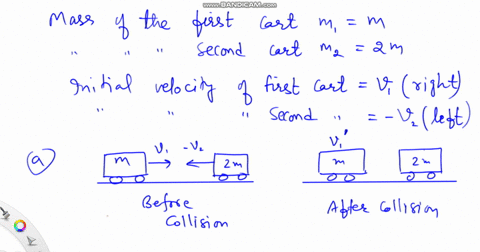 WWW.BANDICAM.COM
Mass of the first cart m₁ = m
" " " Second cart m₂ = 2m
Initial velocity of first cart = v₁ (right)
" " " Second " = -v₂ (left)
a
v₁ -v₂ v₁'
m 2m m 2m
Before After Collision
Collision